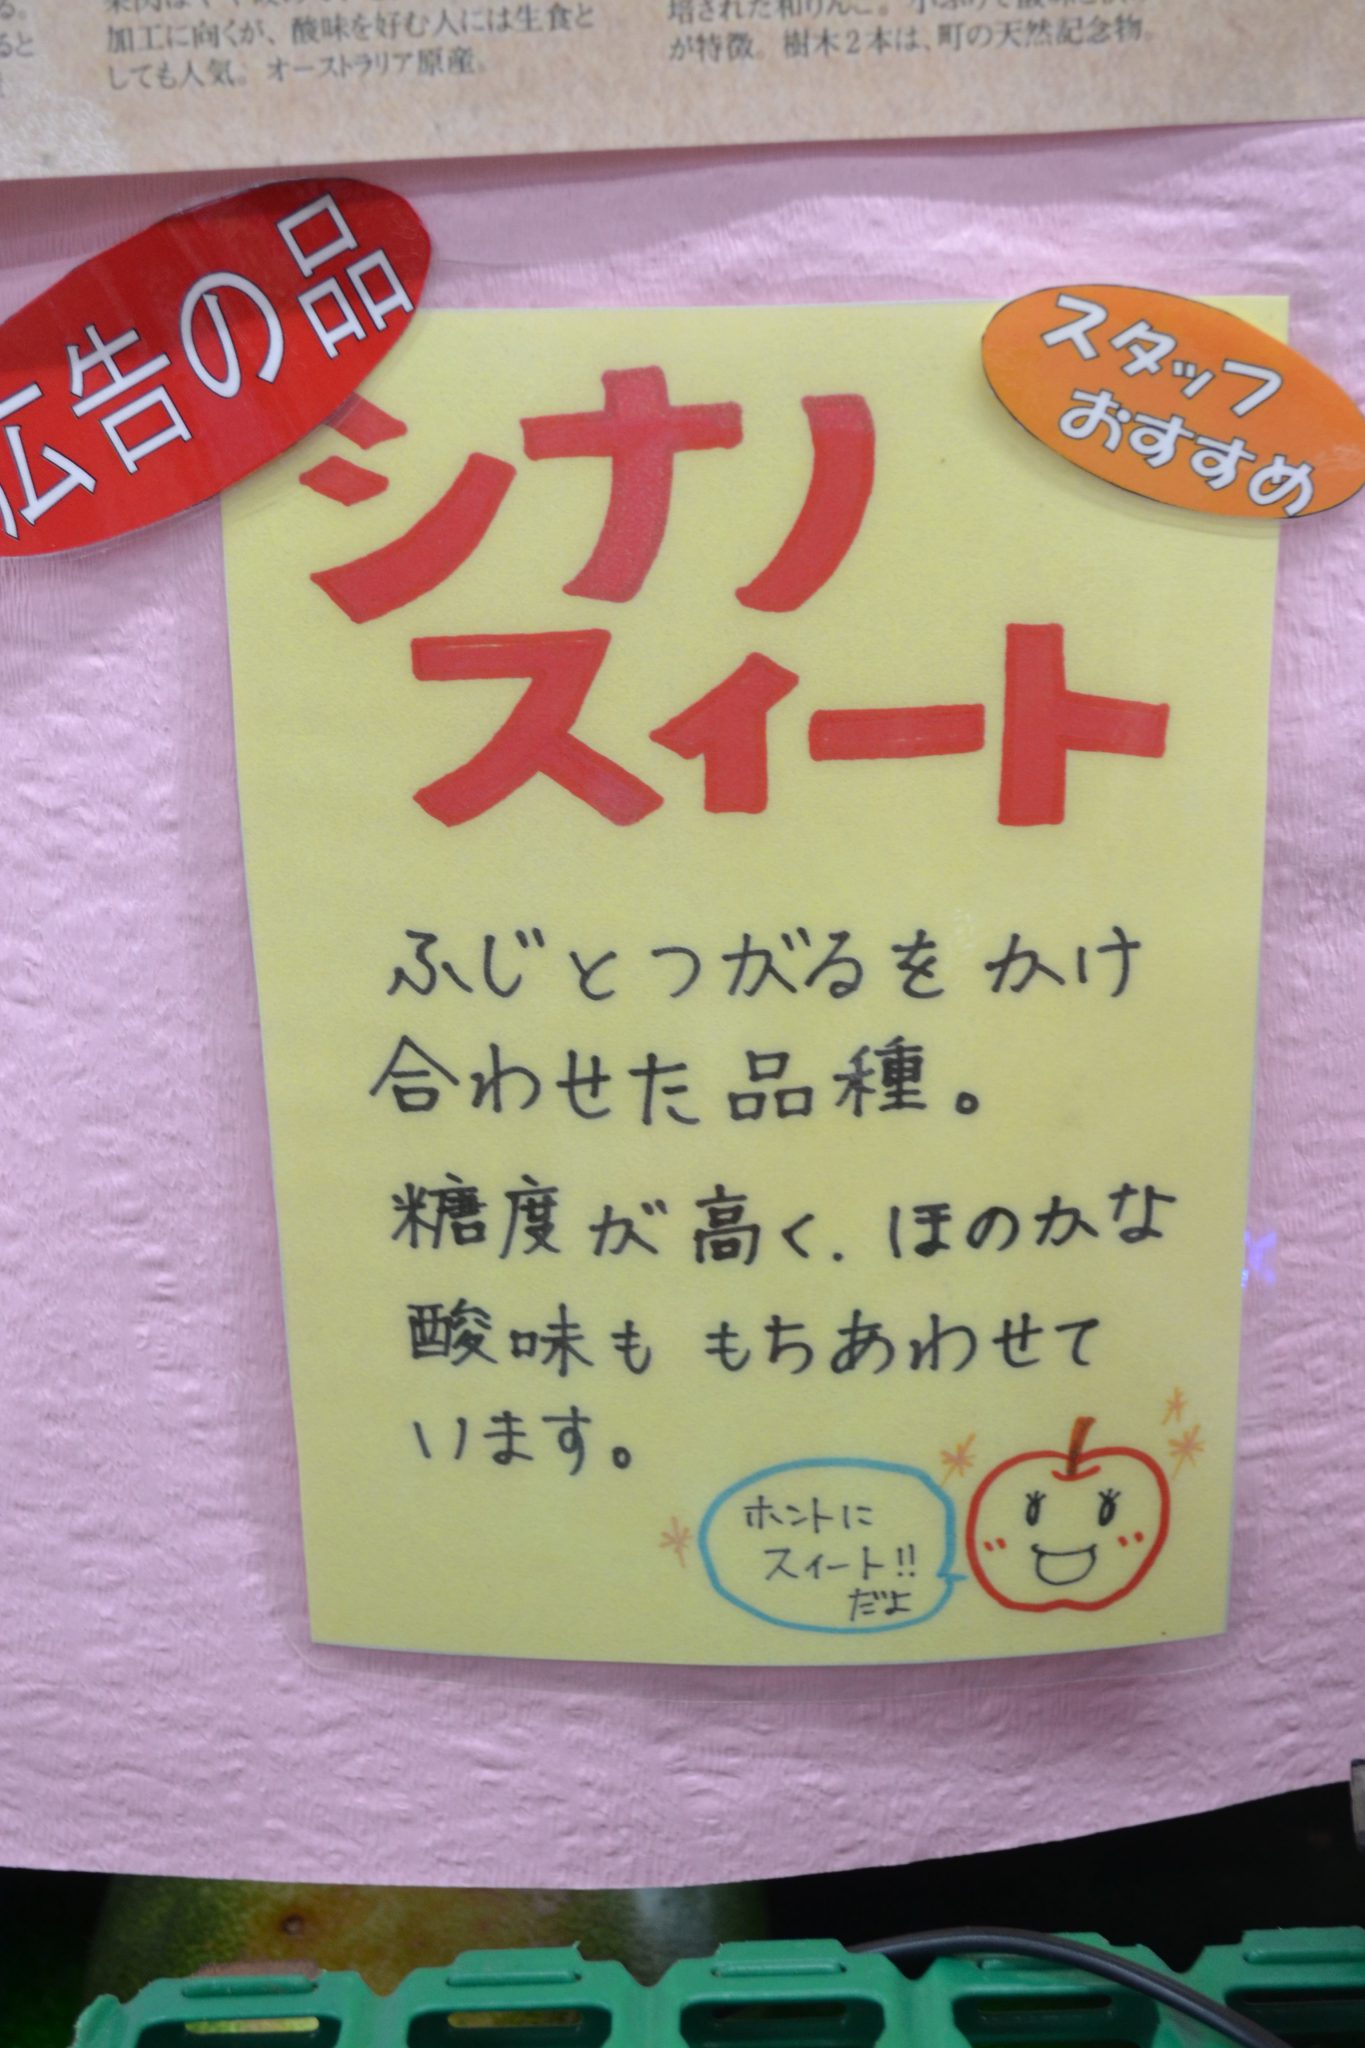 加工に向くが、酸味を好む人には生食と
しても人気。オーストラリア原産。
が特徴。樹木2本は、町の天然記念物。
広告の品
スタッフ
おすすめ
シナノ
スィート
ふじとつがるをかけ
合わせた品種。
糖度が高く、ほのかな
酸味ももちあわせて
います。
ホントに
スィート!!
だよ